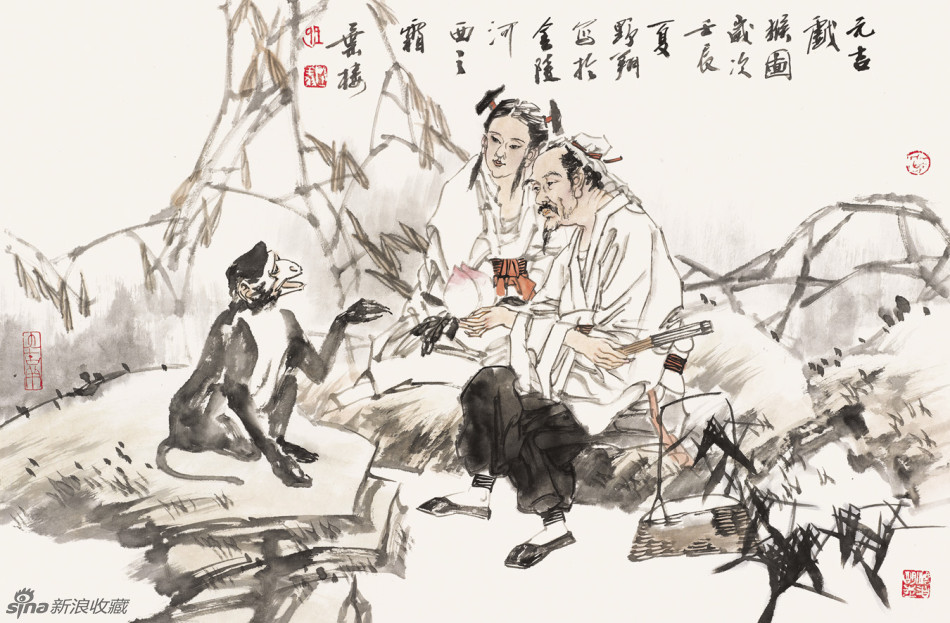 元吉
戏
猴圖
歲次
壬辰
夏
野翔
写於
金陵
河
西之
霜
葉楼
sina新浪收藏